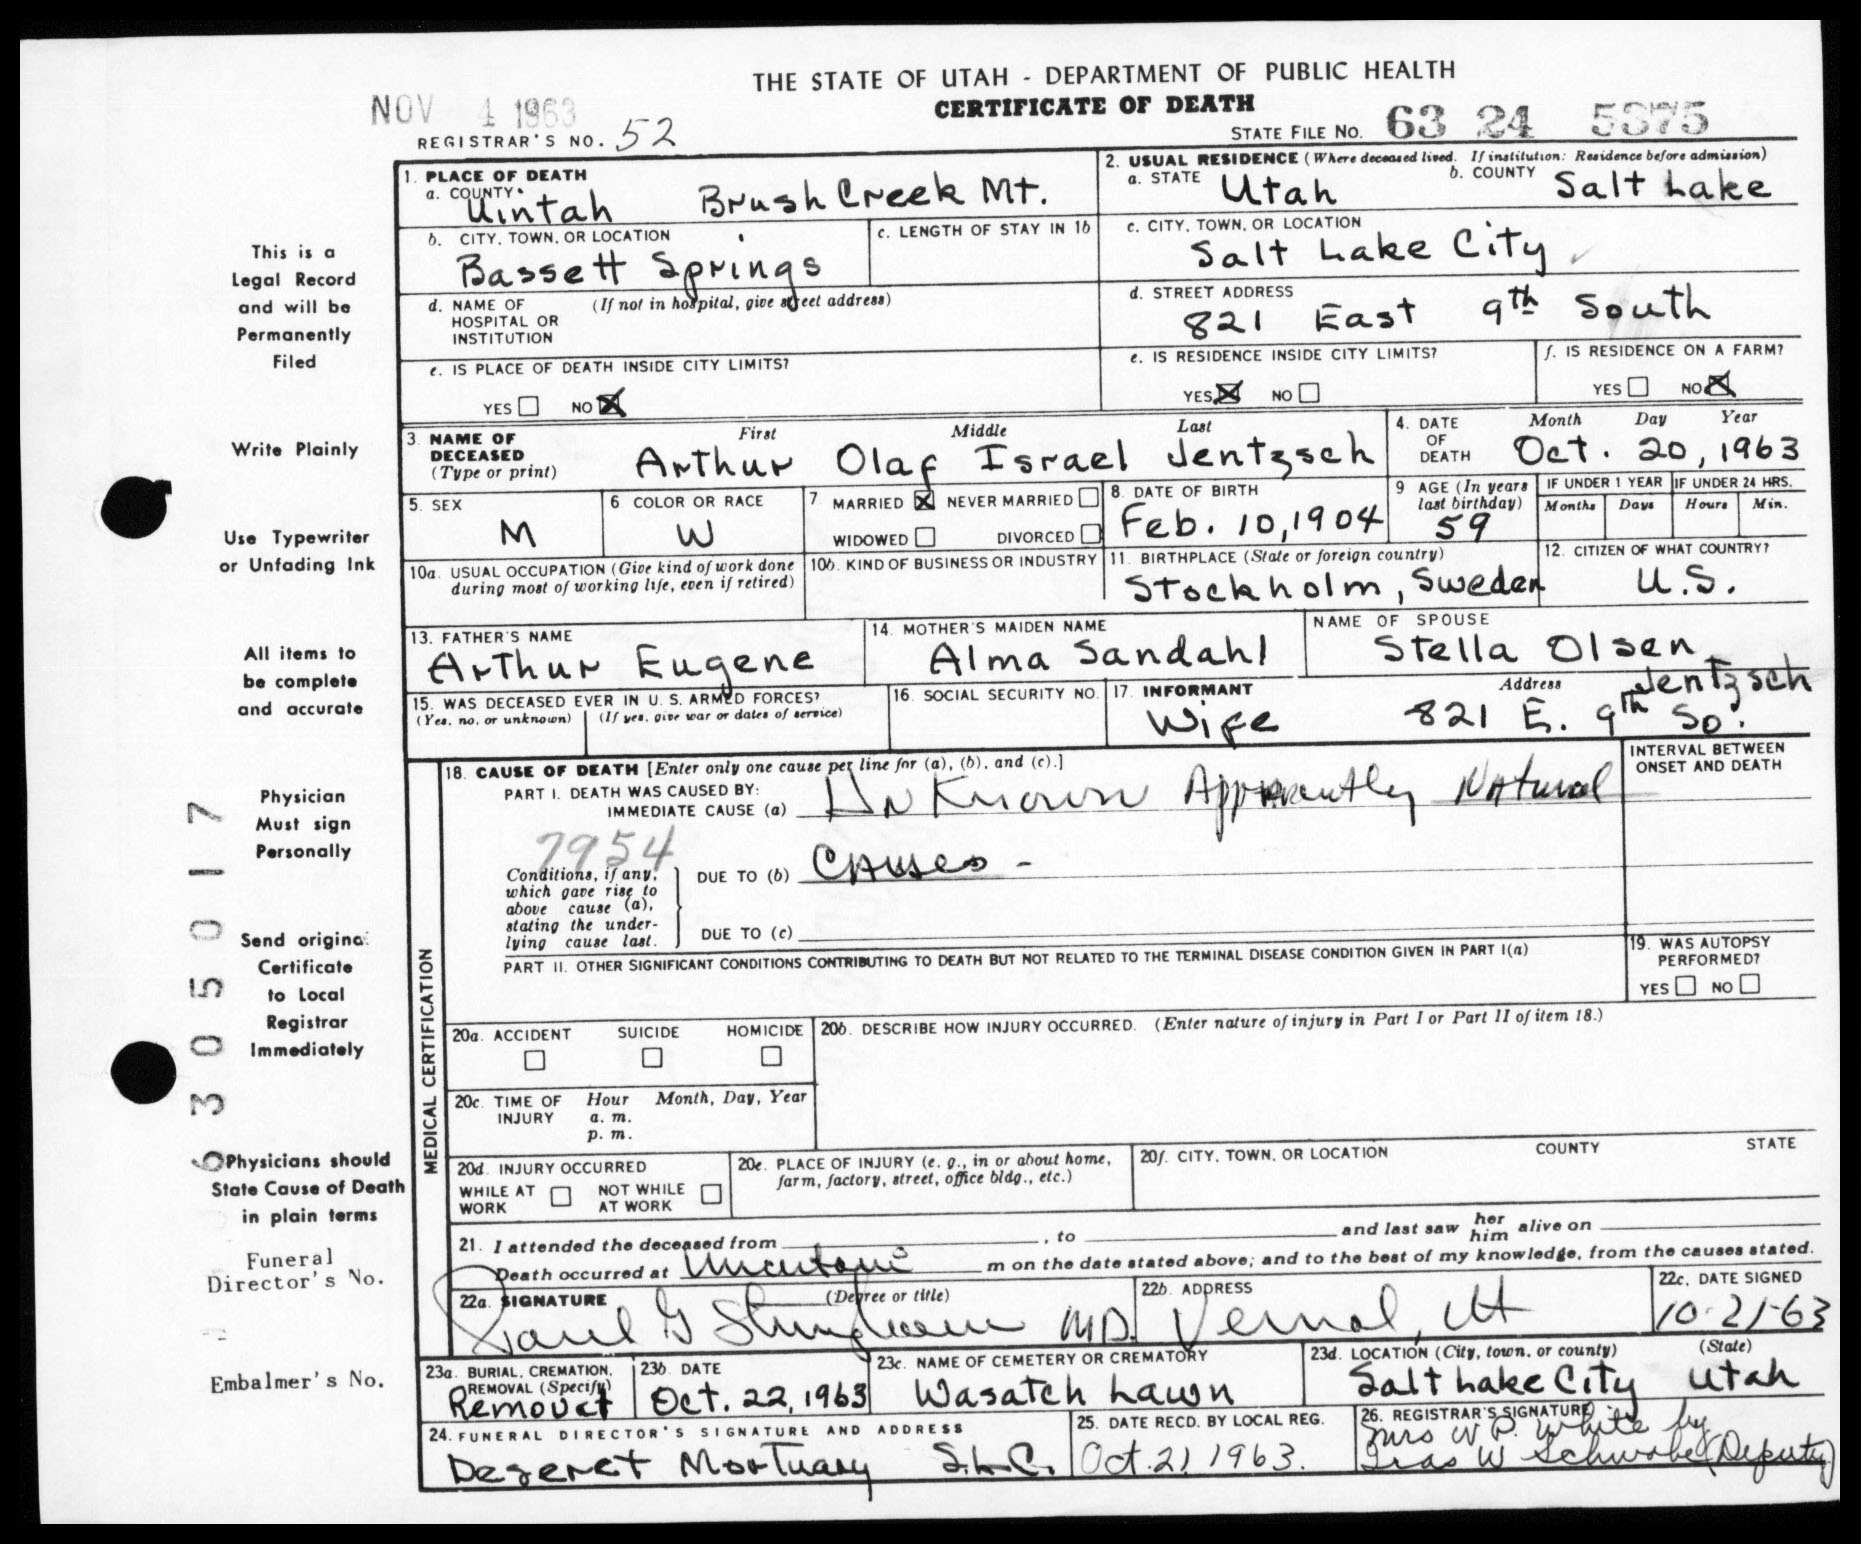 THE STATE OF UTAH - DEPARTMENT OF PUBLIC HEALTH
CERTIFICATE OF DEATH
NOV 4 1963
REGISTRAR'S NO. 52
STATE FILE NO. 63 24 5375
1. PLACE OF DEATH
a. COUNTY Uintah Brush Creek Mt.
2. USUAL RESIDENCE (Where deceased lived. If institution: Residence before admission)
a. STATE Utah b. COUNTY Salt Lake
b. CITY, TOWN, OR LOCATION Bassett Springs
c. LENGTH OF STAY IN 1b
c. CITY, TOWN, OR LOCATION Salt Lake City
d. NAME OF HOSPITAL OR INSTITUTION (If not in hospital, give street address)
d. STREET ADDRESS 821 East 9th South
e. IS PLACE OF DEATH INSIDE CITY LIMITS?
YES NO X
e. IS RESIDENCE INSIDE CITY LIMITS?
YES X NO
f. IS RESIDENCE ON A FARM?
YES NO X
3. NAME OF DECEASED (Type or print)
First Middle Last
Arthur Olaf Israel Jentzsch
4. DATE OF DEATH Month Day Year
Oct. 20, 1963
5. SEX M
6 COLOR OR RACE W
7 MARRIED X NEVER MARRIED
WIDOWED DIVORCED
8. DATE OF BIRTH Feb. 10, 1904
9 AGE (In years last birthday) 59
IF UNDER 1 YEAR Months Days
IF UNDER 24 HRS. Hours Min.
10a. USUAL OCCUPATION (Give kind of work done during most of working life, even if retired)
10b. KIND OF BUSINESS OR INDUSTRY
11. BIRTHPLACE (State or foreign country) Stockholm, Sweden
12. CITIZEN OF WHAT COUNTRY? U.S.
13. FATHER'S NAME Arthur Eugene
14. MOTHER'S MAIDEN NAME Alma Sandahl
NAME OF SPOUSE Stella Olsen Jentzsch
15. WAS DECEASED EVER IN U. S. ARMED FORCES?
(Yes, no, or unknown) (If yes, give war or dates of service)
16. SOCIAL SECURITY NO.
17. INFORMANT Wife
Address 821 E. 9th So.
MEDICAL CERTIFICATION
18. CAUSE OF DEATH [Enter only one cause per line for (a), (b), and (c).]
INTERVAL BETWEEN ONSET AND DEATH
PART I. DEATH WAS CAUSED BY:
IMMEDIATE CAUSE (a) UnKnown Apparently Natural
7954
Conditions, if any, which gave rise to above cause (a), stating the underlying cause last.
DUE TO (b) Causes -
DUE TO (c)
PART II. OTHER SIGNIFICANT CONDITIONS CONTRIBUTING TO DEATH BUT NOT RELATED TO THE TERMINAL DISEASE CONDITION GIVEN IN PART I(a)
19. WAS AUTOPSY PERFORMED?
YES NO
20a. ACCIDENT SUICIDE HOMICIDE
20b. DESCRIBE HOW INJURY OCCURRED. (Enter nature of injury in Part I or Part II of item 18.)
20c. TIME OF INJURY Hour a. m. p. m. Month, Day, Year
20d. INJURY OCCURRED
WHILE AT WORK NOT WHILE AT WORK
20e. PLACE OF INJURY (e. g., in or about home, farm, factory, street, office bldg., etc.)
20f. CITY, TOWN, OR LOCATION COUNTY STATE
21. I attended the deceased from , to and last saw her him alive on
Death occurred at m on the date stated above; and to the best of my knowledge, from the causes stated.
22a. SIGNATURE (Degree or title)
Paul G Stringham MD.
22b. ADDRESS Vernal, Ut
22c. DATE SIGNED 10-21-63
23a. BURIAL, CREMATION, REMOVAL (Specify) Removal
23b. DATE Oct. 22, 1963
23c. NAME OF CEMETERY OR CREMATORY Wasatch Lawn
23d. LOCATION (City, town, or county) (State)
Salt Lake City Utah
24. FUNERAL DIRECTOR'S SIGNATURE AND ADDRESS
Deseret Mortuary S.L.C.
25. DATE RECD. BY LOCAL REG.
Oct. 21 1963.
26. REGISTRAR'S SIGNATURE
Mrs W.P. White by
W Schwabe (Deputy)
This is a
Legal Record
and will be
Permanently
Filed
Write Plainly
Use Typewriter
or Unfading Ink
All items to
be complete
and accurate
Physician
Must sign
Personally
Send original
Certificate
to Local
Registrar
Immediately
Physicians should
State Cause of Death
in plain terms
Funeral
Director's No.
Embalmer's No.
6305017